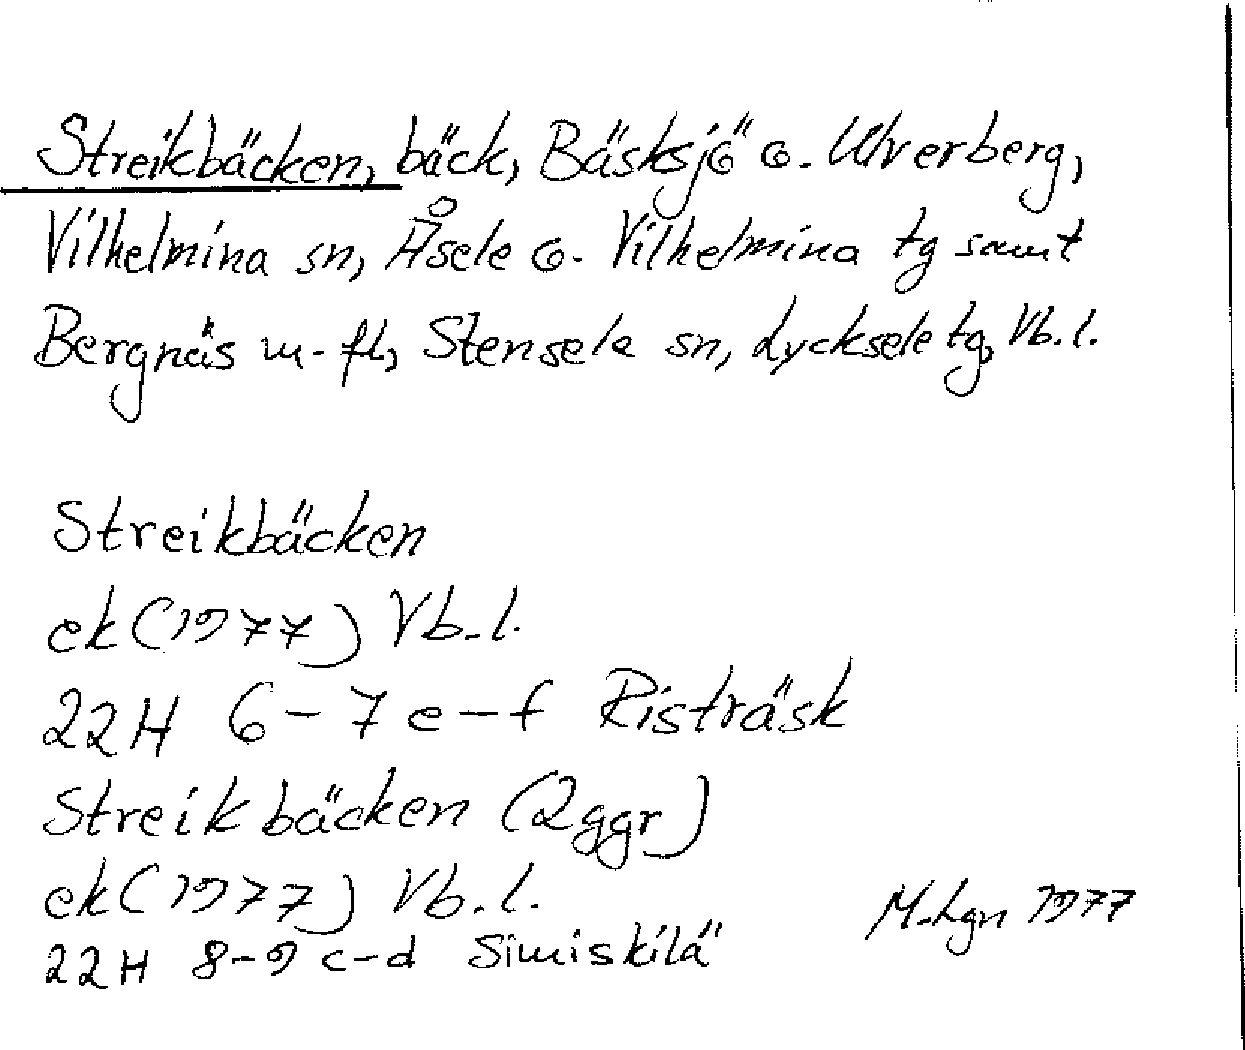 Streikbäcken, bäck, Bäsksjö o. Ulvverberg,
Vilhelmina sn, Åsele o. Vilhelmina tg samt
Bergnäs m-fl, Stensele sn, Lycksele tg, Vb.l.
Streikbäcken
ek (1977) Vb.l.
22H 6-7 e-f Risträsk
Streikbäcken (2ggr)
ek (1977) Vb.l.
22H 8-9 c-d Simiskilä
M-Lgn 1977